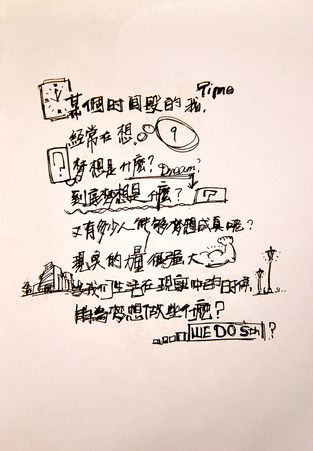 Time
某個时间段的我,
經常在想. ?
? 梦想是什麼? Dream?
到底梦想是什麼? ?
又有多少人能够梦想成真呢?
現实的力量很强大
当我们生活在現实中的时候
能為梦想做些什麼?
WE DO Sth ?